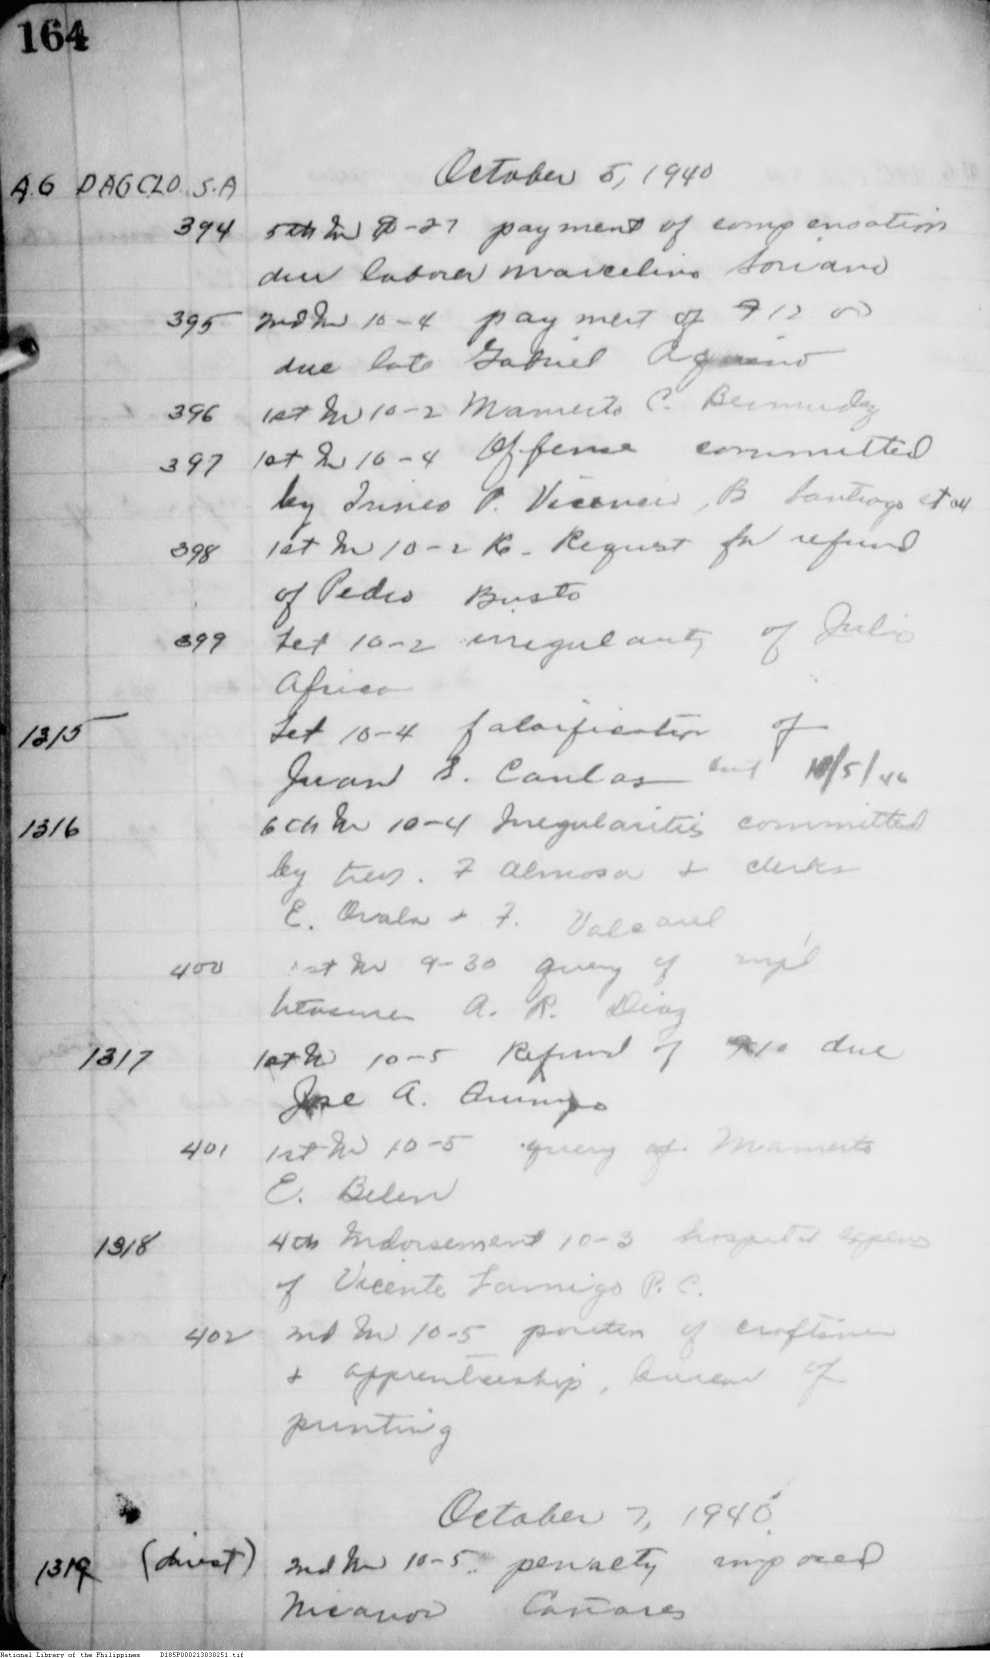 164
October 5, 1940
A.G DAGCLO S.A
394 5th In 9-27 payment of compensation
due laborer Marcelino Soriano
395 2nd In 10-4 payment of ₱12 00
due late Gabriel Aquino
396 1st In 10-2 Mamerto C. Bermudez
397 1st In 10-4 Offense committed
by P. B Santiago et al
398 1st In 10-2 Re- Request for refund
of Pedro Busto
399 Let 10-2 irregularity of Julio
Africa
1315 Let 10-4 falsification of
Juan S. Canlas 10/5/40
1316 6th In 10-4 Irregularities committed
by treas. F Almosa + clerks
E. Ovala + F.
400 1st In 9-30 query of mpl
treasurer A. R. Diaz
1317 1st In 10-5 Refund of ₱10 due
Jose A.
401 1st In 10-5 query of Mamerto
E. Belen
1318 4th Indorsement 10-3 hospital expens
of Vicente P. C.
402 2nd In 10-5 of craftsmen
+ apprenticeship, bureau of
printing
October 7, 1940
1319 (direct) 2nd In 10-5 penalty imposed
Nicanor Cañares
National Library of the Philippines D185P000213030251.tif